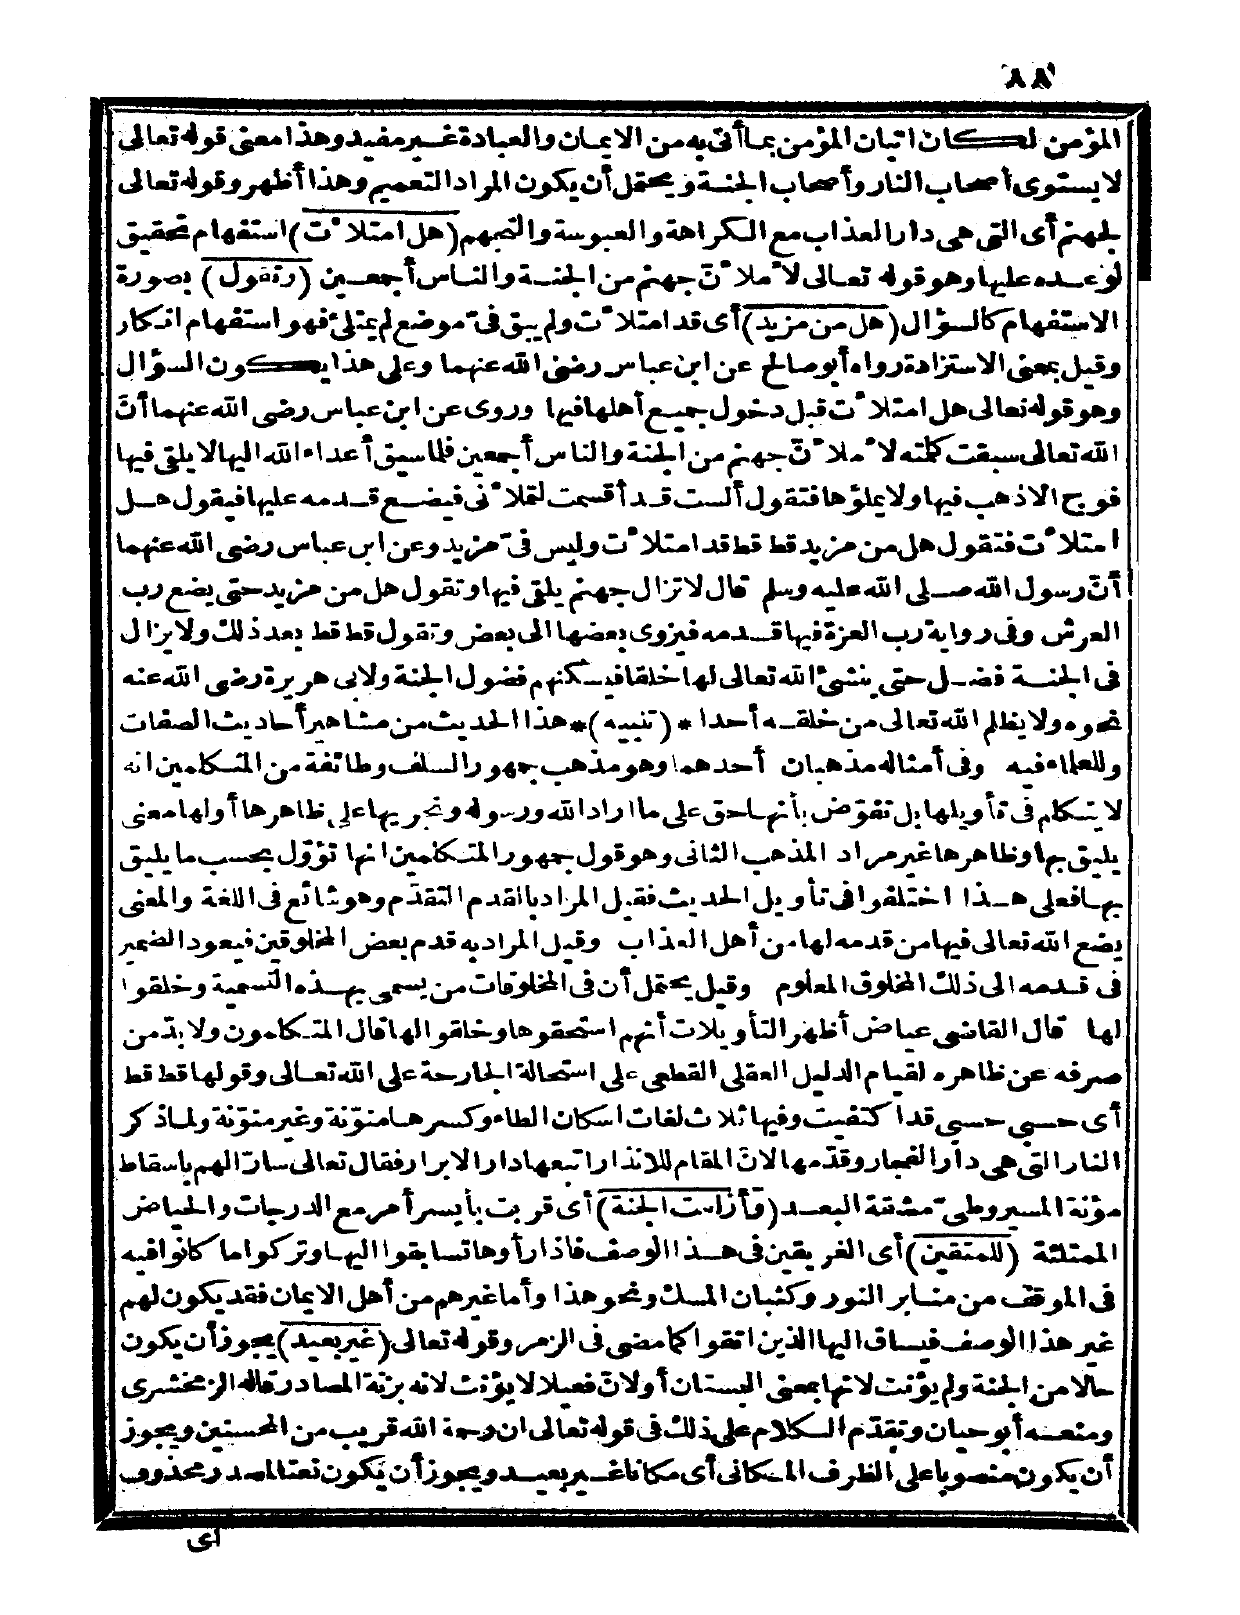 ٨٨
المؤمن لكان اتيان المؤمن بما أتى به من الايمان والعبادة غير مفيد وهذا معنى قوله تعالى
لا يستوى أصحاب النار وأصحاب الجنة ويحتمل أن يكون المراد التعميم وهذا أظهر وقوله تعالى
لجهنم أى التى هى دار العذاب مع الكراهة والعبوسة والتجهم (هل امتلا ٔت) استفهام تحقيق
لوعده عليها وهو قوله تعالى لا ٔملا ٔنّ جهنم من الجنة والناس أجمعين (وتقول) بصورة
الاستفهام كالسؤال (هل من مزيد) أى قد امتلا ٔت ولم يبق فىّ موضع لم يمتلئ فهو استفهام انكار
وقيل بمعنى الاستزادة رواه أبو صالح عن ابن عباس رضى الله عنهما وعلى هذا يكون السؤال
وهو قوله تعالى هل امتلا ٔت قبل دخول جميع أهلها فيها وروى عن ابن عباس رضى الله عنهما أنّ
الله تعالى سبقت كلمته لا ٔملا ٔنّ جهنم من الجنة والناس أجمعين فلما سيق أعداء الله اليها لا يلقى فيها
فوج الا ذهب فيها ولا يملؤها فتقول ألست قد أقسمت لتملا ٔنى فيضع قدمه عليها فيقول هل
امتلا ٔت فتقول هل من مزيد قط قط قد امتلا ٔت وليس فىّ مزيد وعن ابن عباس رضى الله عنهما
أنّ رسول الله صلى الله عليه وسلم قال لا تزال جهنم يلقى فيها وتقول هل من مزيد حتى يضع رب
العرش وفى رواية رب العزة فيها قدمه فيزوى بعضها الى بعض وتقول قط قط بعد ذلك ولا يزال
فى الجنة فضل حتى ينشئ الله تعالى لها خلقا فيسكنهم فضول الجنة ولابى هريرة رضى الله عنه
نحوه ولا يظلم الله تعالى من خلقه أحدا * (تنبيه) * هذا الحديث من مشاهير أحاديث الصفات
وللعلماء فيه وفى أمثاله مذهبان أحدهما وهو مذهب جمهور السلف وطائفة من المتكلمين انه
لا يتكلم فى تأويلها بل تفوّض بأنها حق على ما اراد الله ورسوله ونجريها على ظاهرها أو لها معنى
يليق بها وظاهرها غير مراد المذهب الثانى وهو قول جمهور المتكلمين انها تؤوّل بحسب ما يليق
بها فعلى هذا اختلفوا فى تأويل الحديث فقيل المراد بالقدم التقدّم وهو شائع فى اللغة والمعنى
يضع الله تعالى فيها من قدمه لها من أهل العذاب وقيل المراد به قدم بعض المخلوقين فيعود الضمير
فى قدمه الى ذلك المخلوق المعلوم وقيل يحتمل أن فى المخلوقات من يسمى بهذه التسمية وخلقوا
لها قال القاضى عياض أظهر التأويلات أنهم استحقوها وخلقوا لها قال المتكلمون ولا بدّ من
صرفه عن ظاهره لقيام الدليل العقلى القطعى على استحالة الجارحة على الله تعالى وقولها قط قط
أى حسبى حسبى قد اكتفيت وفيها ثلاث لغات اسكان الطاء وكسرها منوّنة وغير منوّنة ولما ذكر
النار التى هى دار الفجار وقدّمها لانّ المقام للانذار اتبعها دار الابرار فقال تعالى سارّا لهم باسقاط
مؤنة المسير وطىّ مشقة البعد (وأزلفت الجنة) أى قربت بأيسر أمر مع الدرجات والحياض
الممتلئة (للمتقين) أى الغريقين فى هذا الوصف فاذا رأوها تسابقوا اليها وتركوا ما كانوا فيه
فى الموقف من منابر النور وكثبان المسك ونحو هذا وأما غيرهم من أهل الايمان فقد يكون لهم
غير هذا الوصف فيساق اليها الذين اتقوا كما مضى فى الزمر وقوله تعالى (غير بعيد) يجوز أن يكون
حالا من الجنة ولم يؤنث لانها بمعنى البستان أولانّ فعيلا لا يؤنث لانه بزنة المصادر قاله الزمخشرى
ومنعه أبو حيان وتقدّم الكلام على ذلك فى قوله تعالى ان رحمة الله قريب من المحسنين ويجوز
أن يكون منصوبا على الظرف المكانى أى مكانا غير بعيد ويجوز أن يكون نعتا لمصدر محذوف
أى